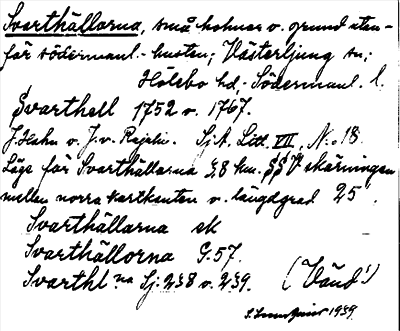 Svarthällorna, små holmar o. grund utan-
för södermanl.-kusten; Västerljung sn;
Hölebo hd. Södermanl. l.
Svarthell 1752 o. 1767.
J. Hahn o. J. v. Rajalin. Sj.A. Litt. VII, N:o 18.
Läge för Svarthällarna 3,8 km. SSV skärningen
mellan norra kartkanten o. längdgrad 25'.
Svarthällarna ek
Svarthällorna G.57.
Svarthl na Sj. 238 o. 239. (Vänd!)
1939